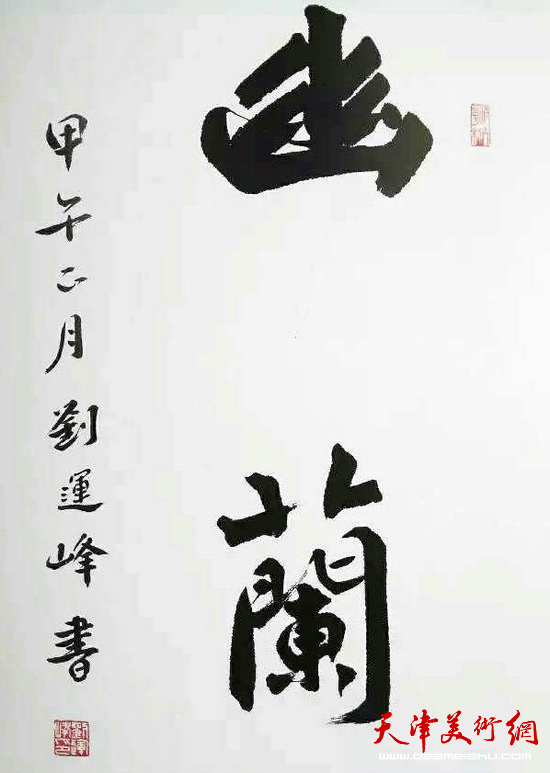 幽蘭
甲午正月劉運峰書
天津美術網
www.022meishu.com